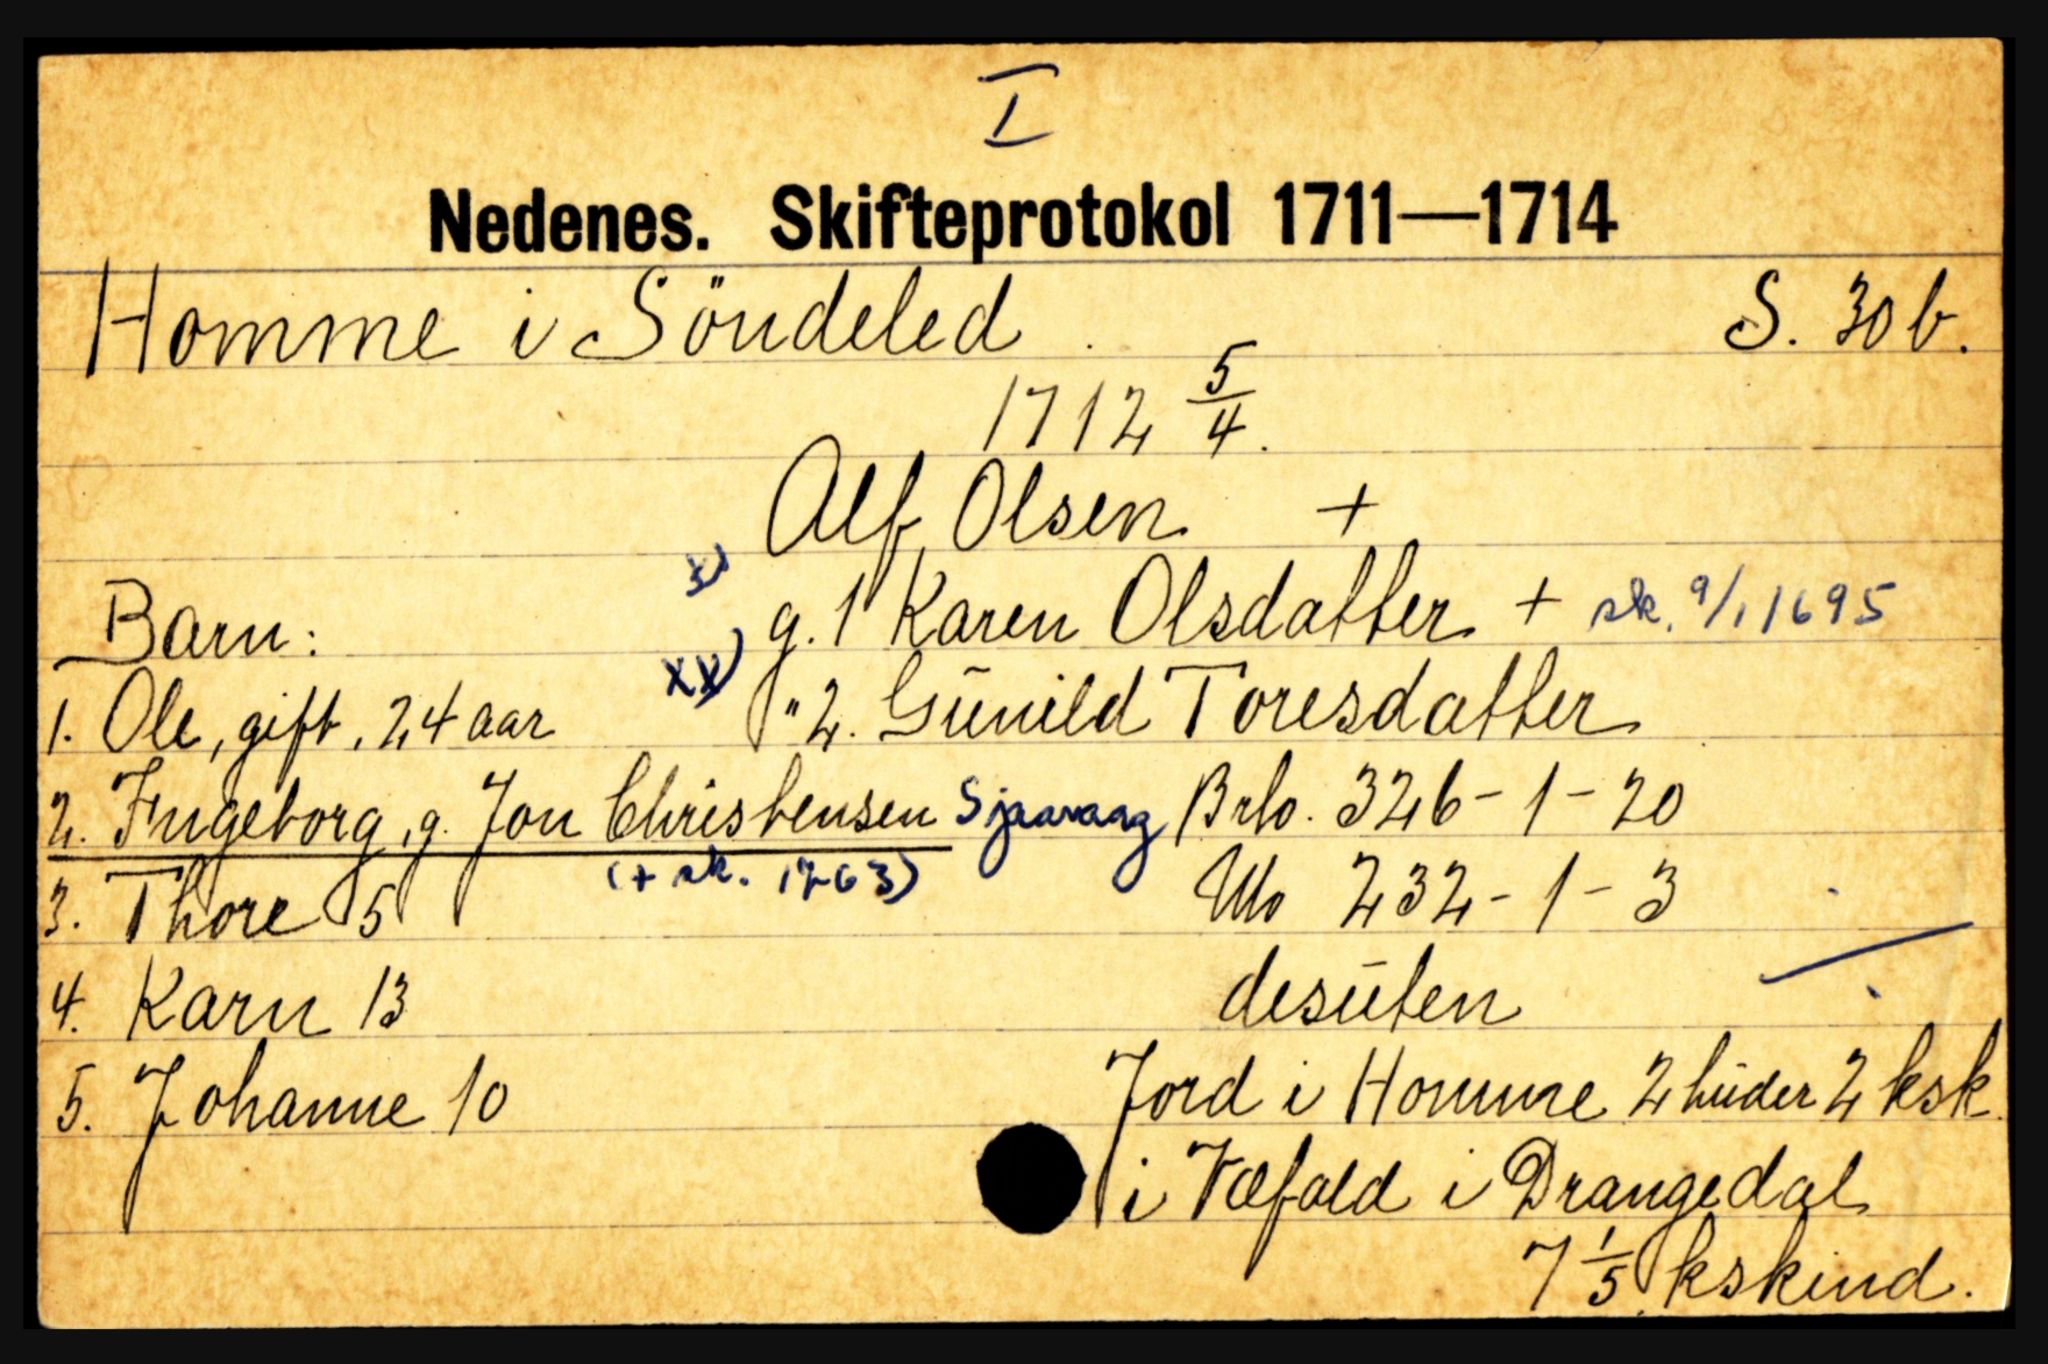 I
Nedenes. Skifteprotokol 1711—1714
Homme i Söndeled. S. 30 b.
1712 5/4.
Alf Olsen +
x) g. 1 Karen Olsdatter + sk. 9/1 1695
xx) " 2. Gūnild Toresdatter
Barn:
1. Ole, gift, 24 aar
2. Ingeborg, g. Jon Christensen Sjaavaag
(+ sk. 1763)
3. Thore 5
4. Karn 13
5. Johanne 10
Brlo. 326-1-20
Ulo 232-1-3
desūten
Jord i Homme 2 hūder 2 ksk.
i Væfald i Drangedal
7 1/5 kskind.